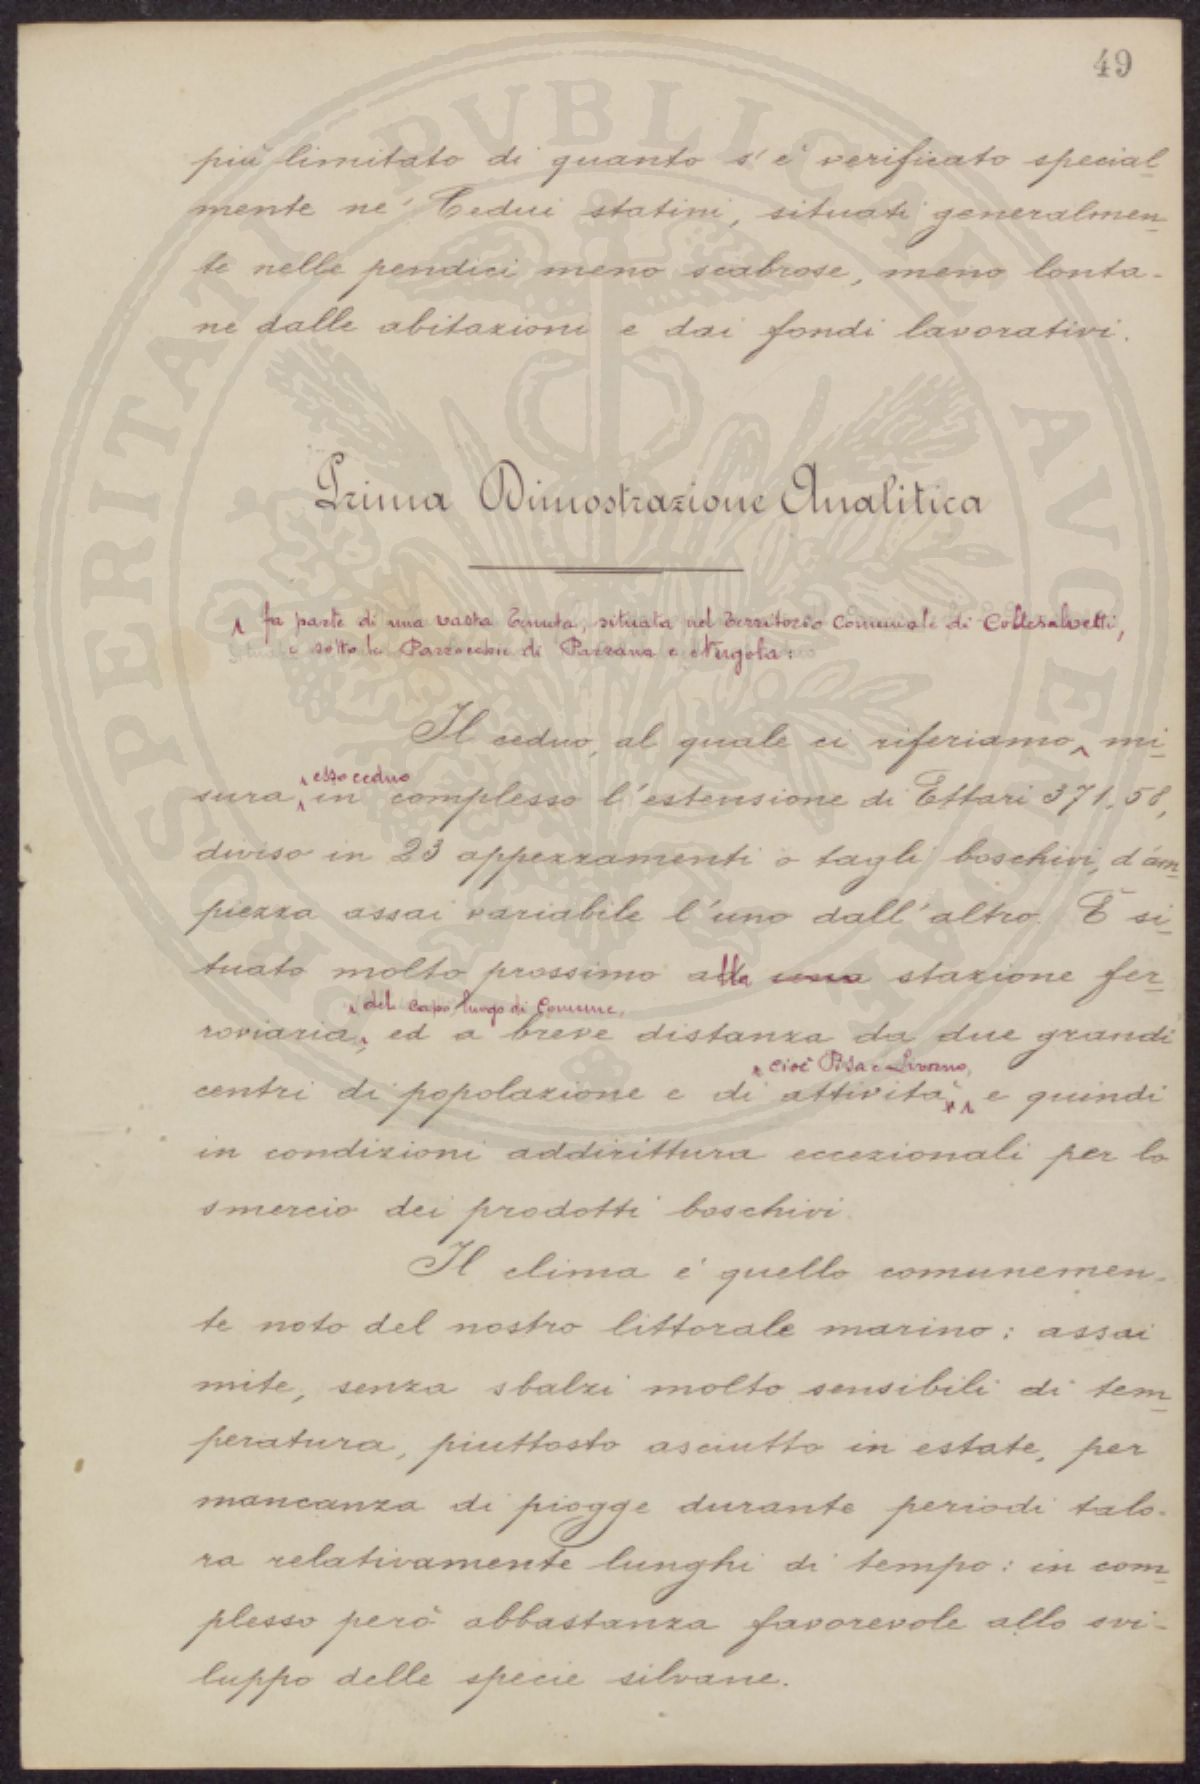 49
più limitato di quanto s'è verificato special
mente ne' Cedui statini, situati generalmen
te nelle pendici meno scabrose, meno lonta-
ne dalle abitazioni e dai fondi lavorativi.
Prima Dimostrazione Analitica
fa parte di una vasta Tenuta, situata nel Territorio Comunale di Collesalvetti,
e sotto le Parrocchie di Parrana e Nugola:
Il ceduo, al quale ci riferiamo, mi
esso ceduo
sura, in complesso l'estensione di Ettari 371.58,
diviso in 23 appezzamenti o tagli boschivi, d'am
piezza assai variabile l'uno dall'altro. È si
tuato molto prossimo alla una stazione fer
del capo luogo di Comune,
roviaria, ed a breve distanza da due grandi
cioè Pisa e Livorno,
centri di popolazione e di attività, e quindi
in condizioni addirittura eccezionali per lo
smercio dei prodotti boschivi.
Il clima è quello comunemen-
te noto del nostro littorale marino: assai
mite, senza sbalzi molto sensibili di tem
peratura, piuttosto asciutto in estate, per
mancanza di piogge durante periodi talo-
ra relativamente lunghi di tempo: in com
plesso però abbastanza favorevole allo svi-
luppo delle specie silvane.
PROSPERITATI PVBLICAE AVGENDAE